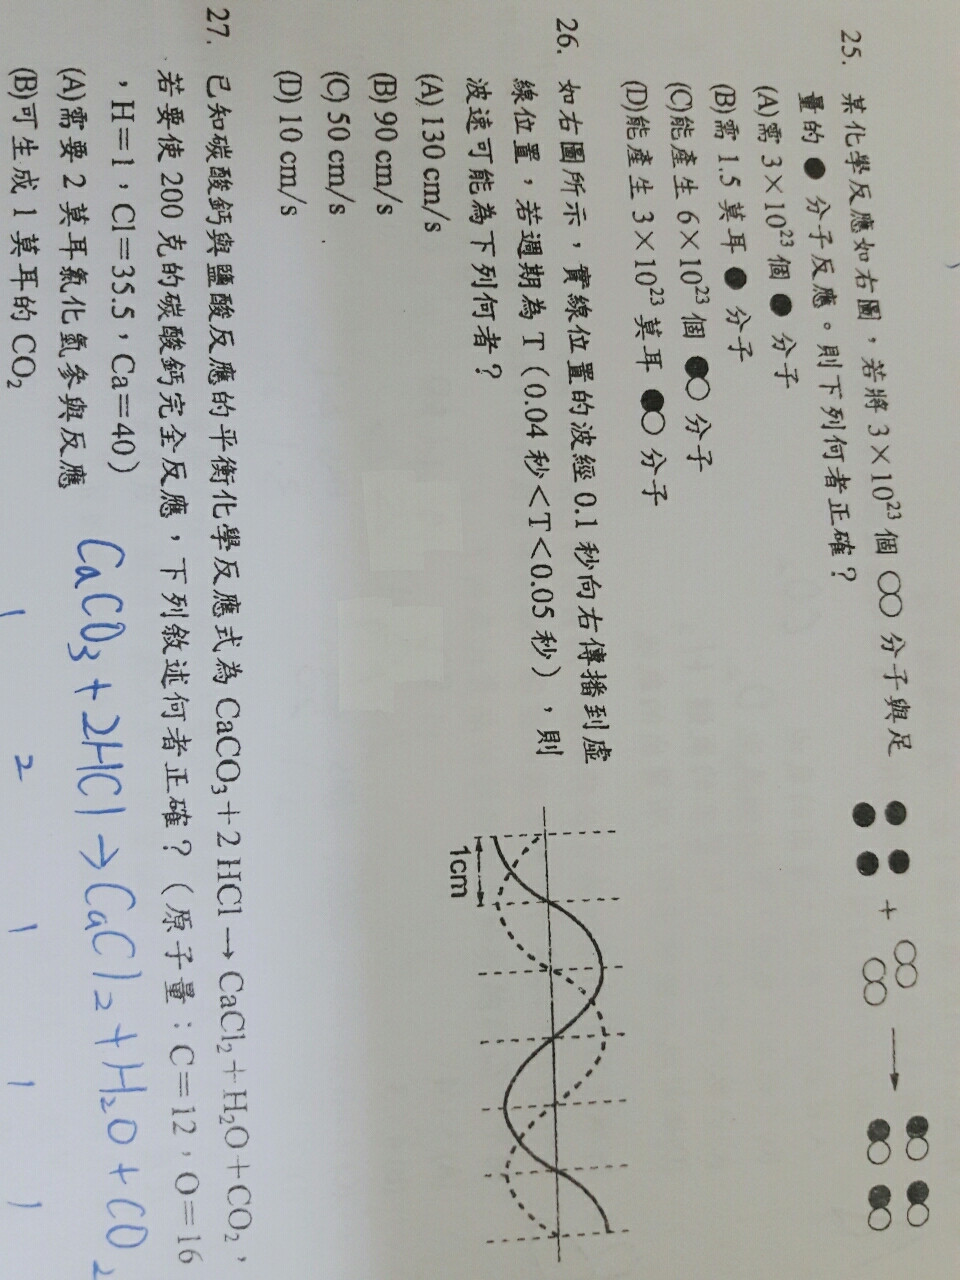 25. 某化學反應如右圖，若將 3×10²³ 個 ○○ 分子與足
量的 ● 分子反應。則下列何者正確？
(A)需 3×10²³ 個 ● 分子
(B)需 1.5 莫耳 ● 分子
(C)能產生 6×10²³ 個 ●○ 分子
(D)能產生 3×10²³ 莫耳 ●○ 分子
+ →
26. 如右圖所示，實線位置的波經 0.1 秒向右傳播到虛
線位置，若週期為 T（0.04 秒<T<0.05 秒），則
波速可能為下列何者？
(A) 130 cm/s
(B) 90 cm/s
(C) 50 cm/s
(D) 10 cm/s
1cm
27. 已知碳酸鈣與鹽酸反應的平衡化學反應式為 CaCO₃+2 HCl→CaCl₂+H₂O+CO₂，
若要使 200 克的碳酸鈣完全反應，下列敘述何者正確？（原子量：C=12，O=16
，H=1，Cl=35.5，Ca=40）
(A)需要 2 莫耳氯化氫參與反應
(B)可生成 1 莫耳的 CO₂
CaCO₃+2HCl→CaCl₂+H₂O+CO₂
1 2 1 1 1